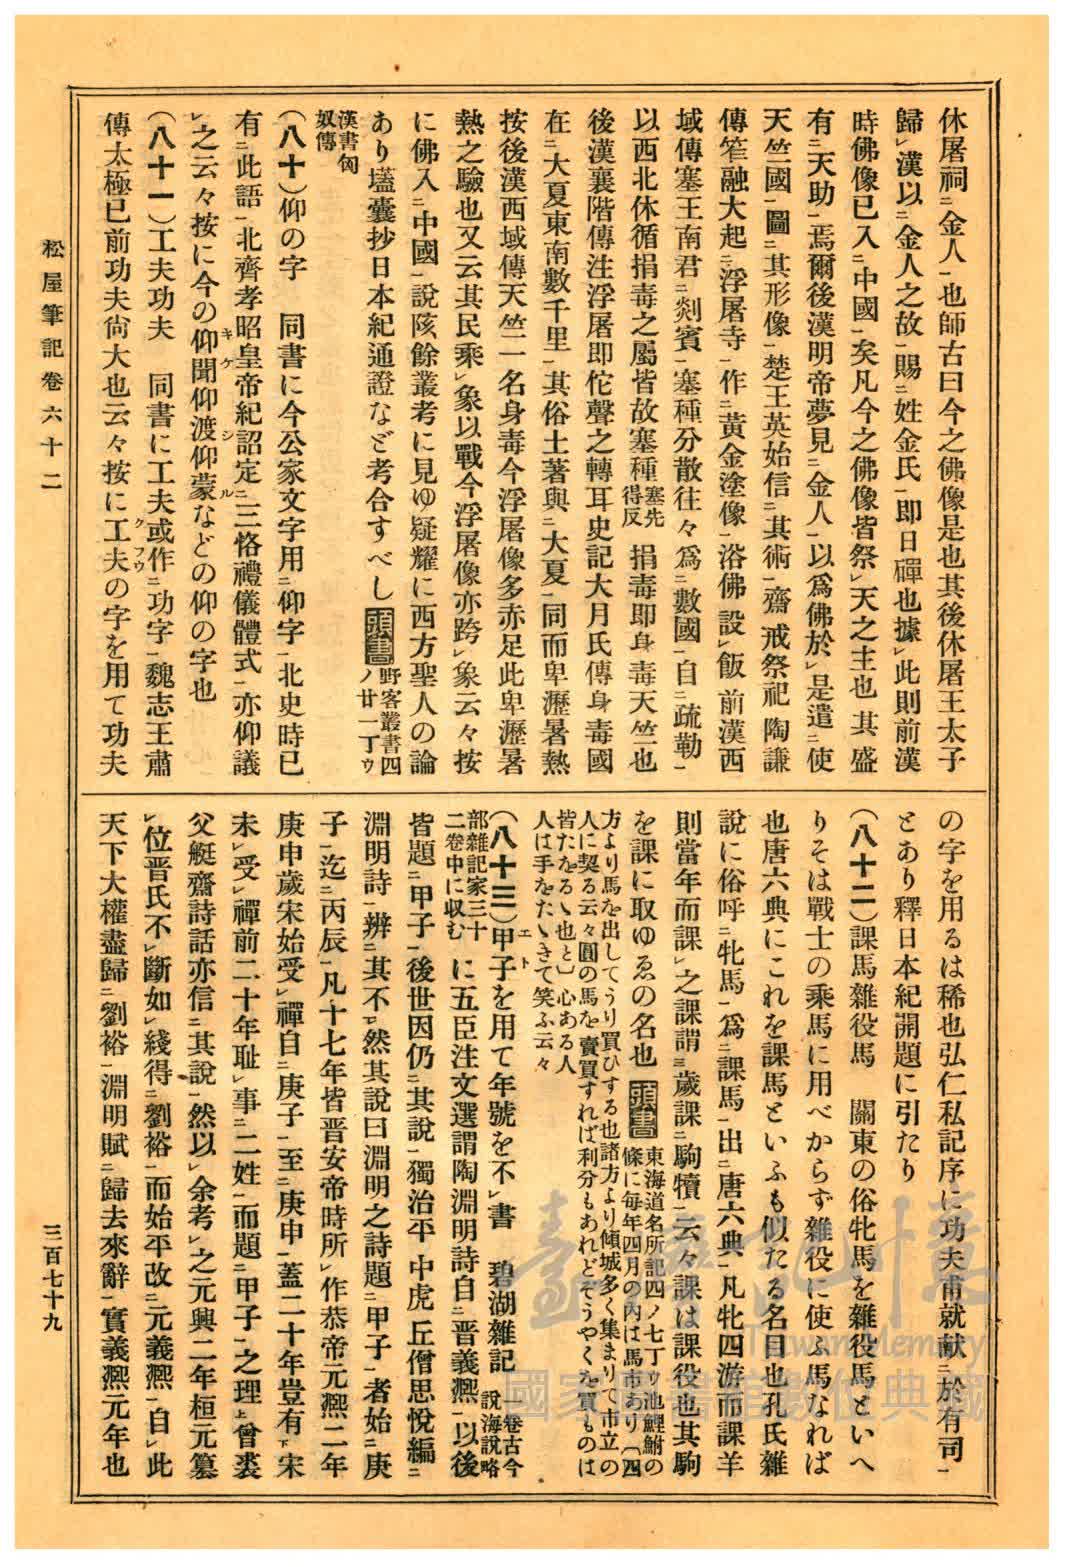 休屠祠㆓金人㆒也師古曰今之佛像是也其後休屠王太子
歸㆑漢以㆓金人之故㆒賜㆓姓金氏㆒即日磾也據㆑此則前漢
時佛像已入㆓中國㆒矣凡今之佛像皆祭㆑天之主也其盛
有㆓天助㆒焉爾後漢明帝夢見㆓金人㆒以爲佛於㆑是遣㆓使
天竺國㆒圖㆓其形像㆒楚王英始信㆓其術㆒齋戒祭祀陶謙
傳笮融大起㆓浮屠寺㆒作㆓黃金塗像㆒浴佛設㆑飯前漢西
域傳塞王南君㆓㓻賓㆒塞種分散往々爲㆓數國㆒自㆓疏勒㆒
以西北休循捐毒之屬皆故塞種塞先得反捐毒即身毒天竺也
後漢襄階傳注浮屠即佗聲之轉耳史記大月氏傳身毒國
在㆓大夏東南數千里㆒其俗土著與㆓大夏㆒同而卑溼暑熱
按後漢西域傳天竺一名身毒今浮屠像多亦足此卑溼暑
熱之驗也又云其民乘㆑象以戰今浮屠像亦跨㆑象云々按
に佛入㆓中國㆒說陔餘叢考に見ゆ疑耀に西方聖人の論
あり壒囊抄日本紀通證など考合すべし頭書野客叢書四ノ廿一丁ウ
漢書匈奴傳
(八十)仰の字　同書に今公家文字用㆓仰字㆒北史時已
有㆓此語㆒北齊孝昭皇帝紀詔定㆓三恪禮儀體式㆒亦仰議
㆑之云々按に今の仰聞仰渡仰蒙などの仰の字也
(八十一)工夫功夫　同書に工夫或作㆓功字㆒魏志王肅
傳太極已前功夫尙大也云々按に工夫の字を用て功夫
の字を用るは稀也弘仁私記序に功夫甫就献㆓於有司㆒
とあり釋日本紀開題に引たり
(八十二)課馬雜役馬　關東の俗牝馬を雜役馬といへ
りそは戰士の乘馬に用べからず雜役に使ふ馬なれば
也唐六典にこれを課馬といふも似たる名目也孔氏雜
說に俗呼㆓牝馬㆒爲㆓課馬㆒出㆓唐六典㆒凡牝四游而課羊
則當年而課㆑之課謂㆘歲課㆓駒犢㆒云々課は課役也其駒
を課に取ゆゑの名也頭書東海道名所記四ノ七丁ゥ池鯉鮒の條に每年四月の內は馬市あり〔四
方より馬を出してうり買ひする也諸方より傾城多く集まりて市立の
人に契る云々圓の馬を賣買すれば利分もあれどそうやくを買ものは
皆たをるゝ也と〕心ある人
人は手をたゝきて笑ふ云々
(八十三)甲子を用て年號を不㆑書　碧湖雜記一卷古今說海說略
部雜記家三十二卷中に収むに五臣注文選謂陶淵明詩自㆓晋義熙㆒以後
皆題㆓甲子㆒後世因仍㆓其說㆒獨治平中虎丘僧思悅編㆓
淵明詩㆒辨㆓其不㆒然其說曰淵明之詩題㆓甲子㆒者始㆓庚
子㆒迄㆓丙辰㆒凡十七年皆晋安帝時所㆑作恭帝元熙二年
庚申歲宋始受㆑禪自㆓庚子㆒至㆓庚申㆒蓋二十年豈有㆘宋
未㆑受㆑禪前二十年耻㆑事㆓二姓㆒而題㆓甲子㆒之理㆖曾裘
父艇齋詩話亦信㆓其說㆒然以㆑余考㆑之元興二年桓元簒
㆑位晋氏不㆑斷如㆑綫得㆓劉裕㆒而始平改㆓元義熙㆒自㆑此
天下大權盡歸㆓劉裕㆒淵明賦㆓歸去來辭㆒實義熙元年也
松屋筆記卷六十二
三百七十九
臺灣記憶
Taiwan Memory
國家圖書館數位典藏